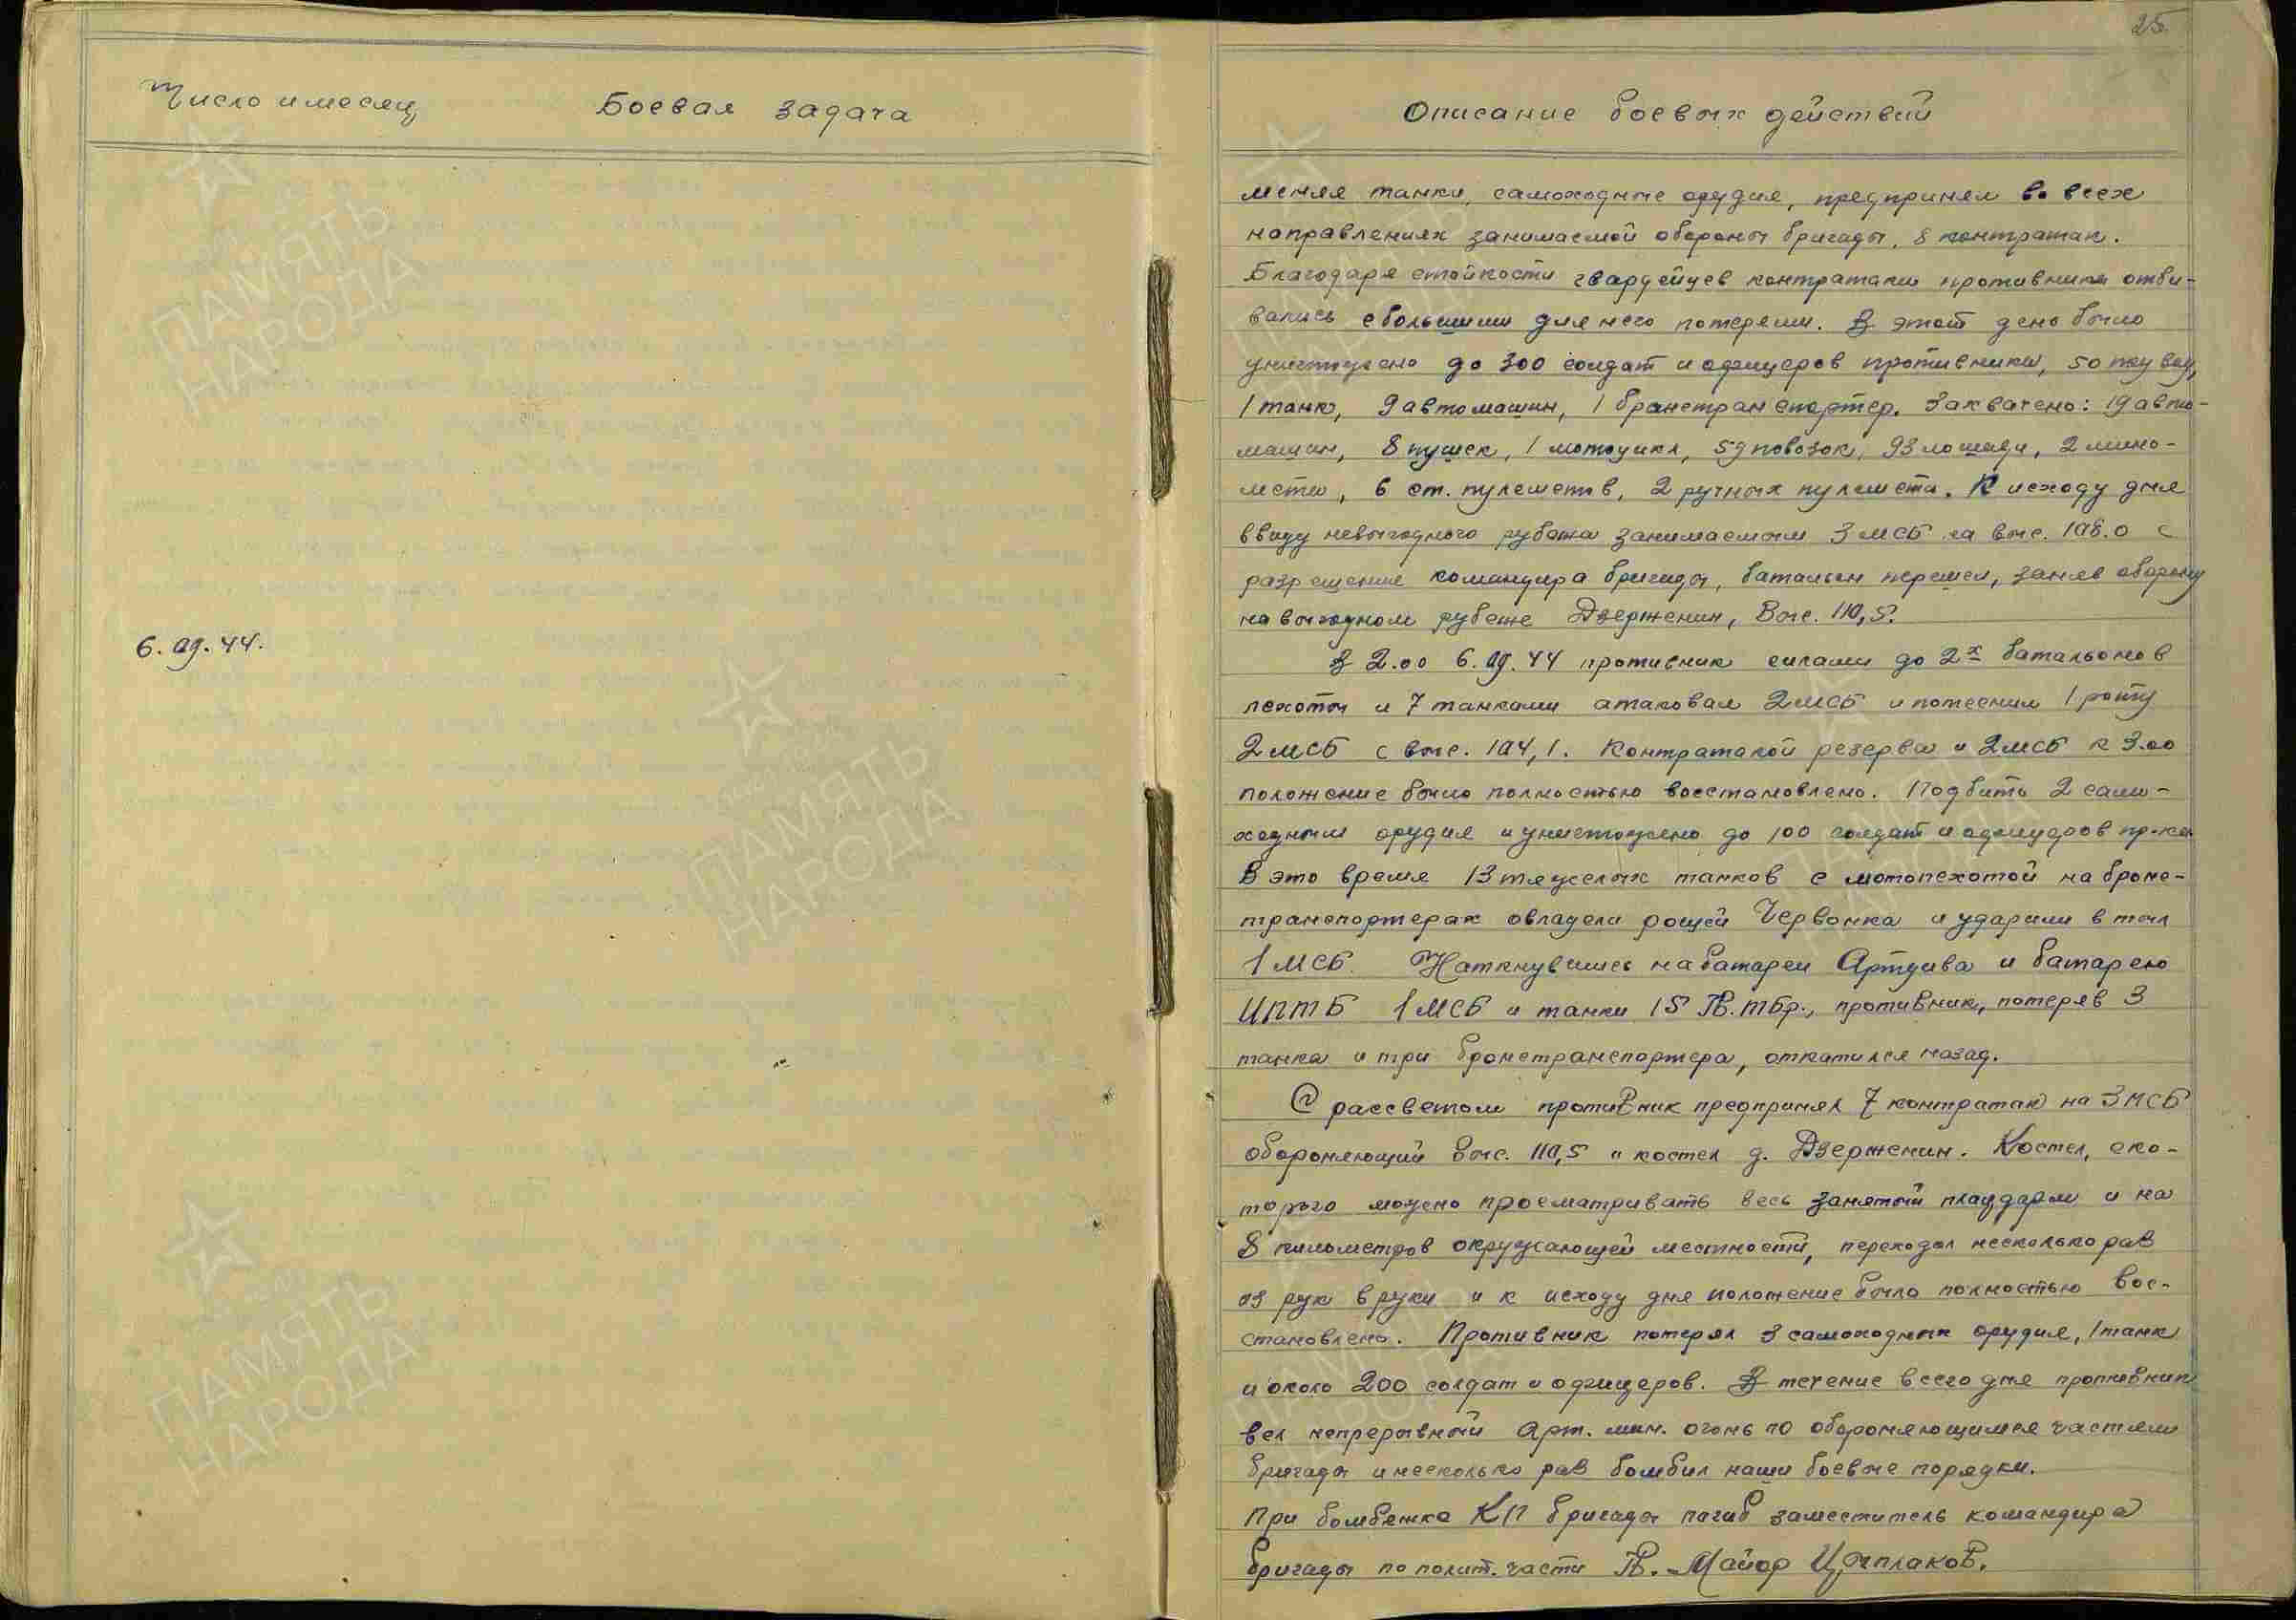 25
Число и месяц
Боевая задача
Описание боевых действий
меняя танки, самоходные орудия, предпринял во всех
направлениях занимаемой обороны бригады, 8 контратак.
Благодаря стойкости гвардейцев контратаки противника отби-
вались с большими для него потерями. В этот день было
уничтожено до 300 солдат и офицеров противника, 50
1 танк, 9 автомашин, 1 бронетранспортер. Захвачено: 19 авто-
машин, 8 пушек, 1 мотоцикл, 59 повозок, 93 лошади, 2 мино-
мета, 6 ст. пулеметов, 2 ручных пулемета. К исходу дня
ввиду невыгодного рубежа занимаемым 3 МСБ на выс. 108.0 с
разрешения командира бригады, батальон перешел, заняв оборону
на выгодном рубеже Дзерженин, Выс. 110,5.
6.09.44.
В 2.00 6.09.44 противник силами до 2х батальонов
пехоты и 7 танками атаковал 2 МСБ и потеснил 1 роту
2 МСБ с выс. 104,1. Контратакой резерва и 2 МСБ к 3.00
положение было полностью восстановлено. Подбито 2 само-
ходным орудия и уничтожено до 100 солдат и офицеров пр-ка
В это время 13 тяжелых танков с мотопехотой на броне-
транспортерах овладели рощей Червонка и ударили в тыл
1 МСБ. Наткнувшись на батареи Артдива и батарею
ИПТБ 1 МСБ и танки 15 Гв. ТБр., противник, потеряв 3
танка и три бронетранспортера, откатился назад.
С рассветом противник предпринял 7 контратак на 3 МСБ
обороняющий выс. 110,5 и костел д. Дзерженин. Костел, с ко-
торого можно просматривать весь занятый плацдарм и на
8 километров окружающей местности, переходил несколько раз
из рук в руки и к исходу дня положение было полностью вос-
становлено. Противник потерял 3 самоходных орудия, 1 танк
и около 200 солдат и офицеров. В течение всего дня противник
вел непрерывный арт. мин. огонь по обороняющимся частям
бригады и несколько раз бомбил наши боевые порядки.
При бомбежке КП бригады погиб заместитель командира
бригады по полит. части Гв. Майор Цыплаков.
ПАМЯТЬ
НАРОДА
ПАМЯТЬ
НАРОДА
ПАМЯТЬ
НАРОДА